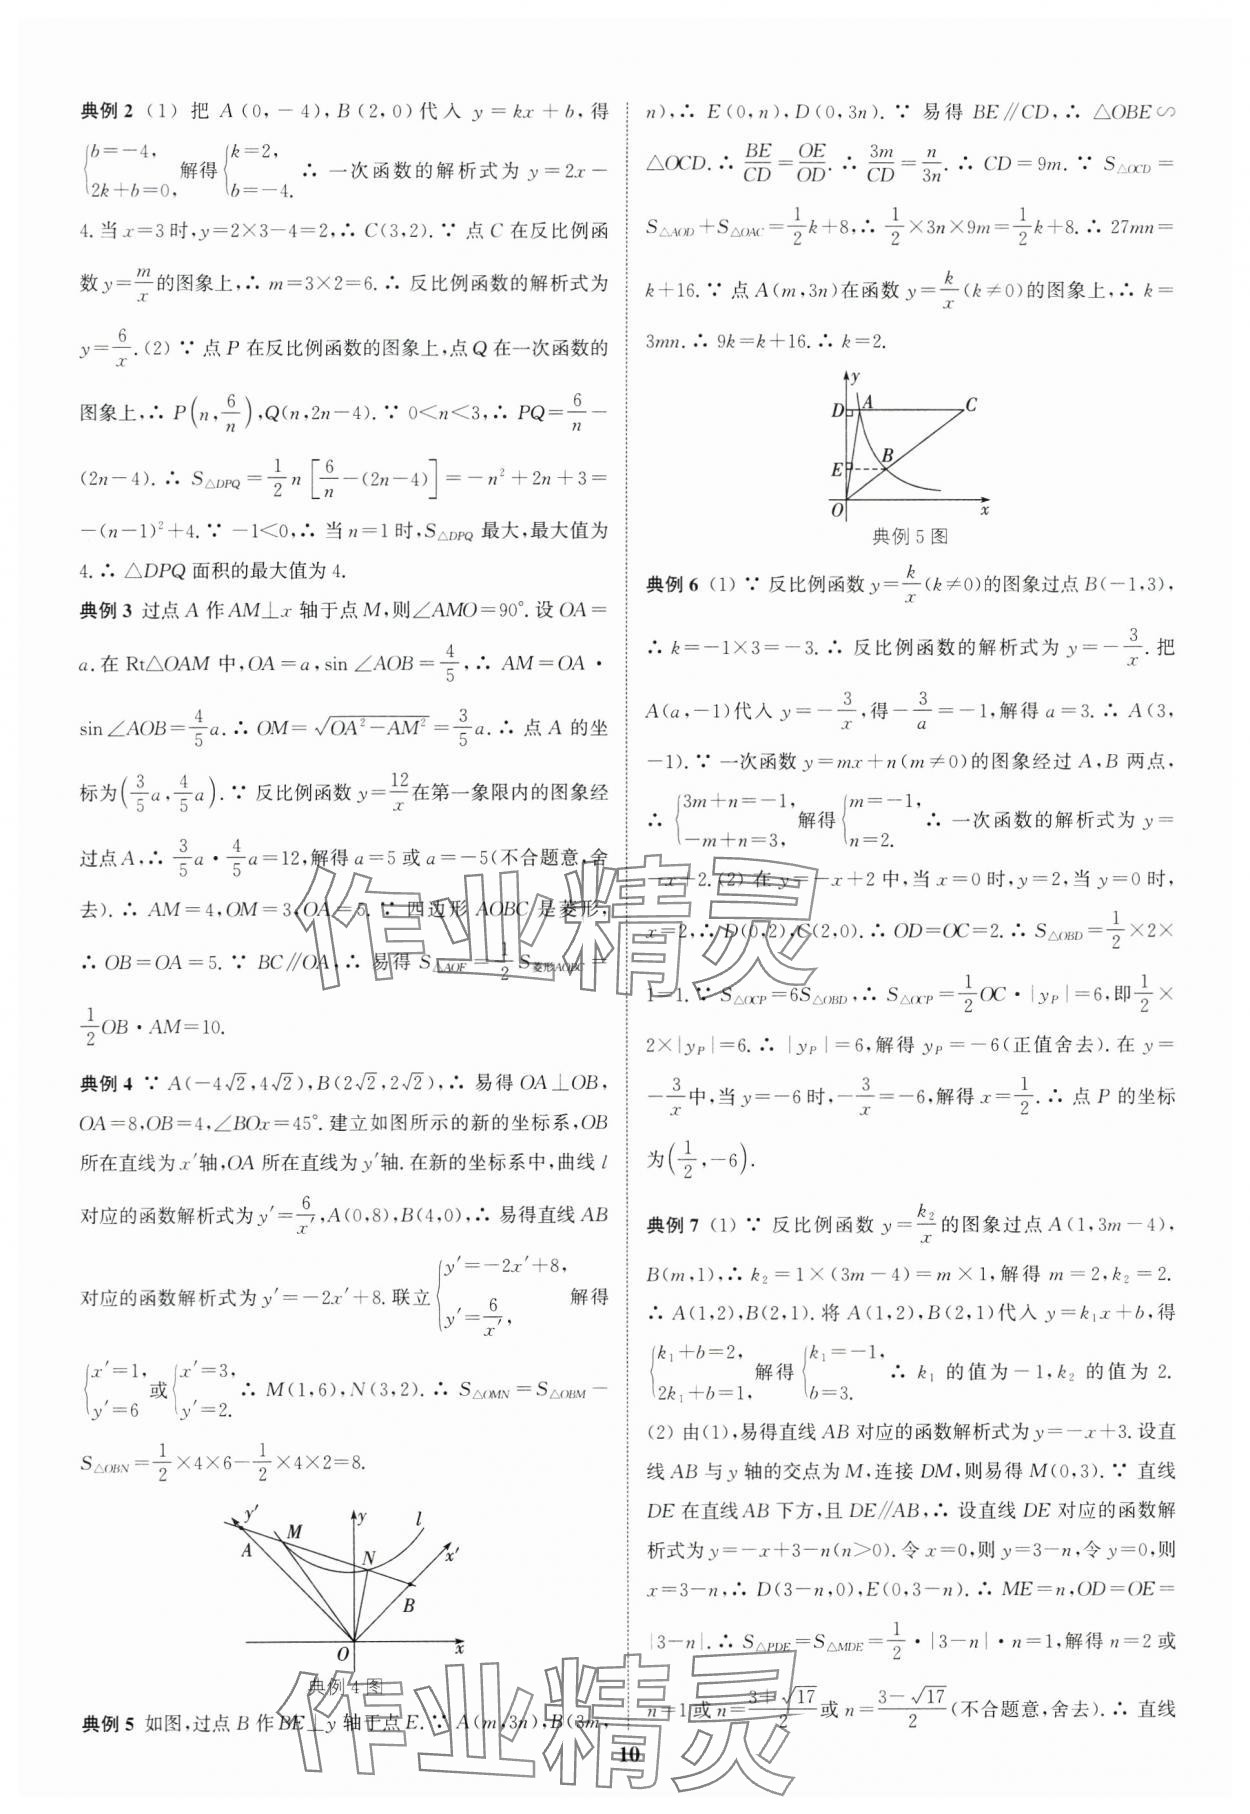 典例 2 (1) 把 A(0,-4),B(2,0)代入 y=kx+b,得
{b=-4, 2k+b=0, 解得 {k=2, b=-4. ∴ 一次函数的解析式为 y=2x-
4.当 x=3 时,y=2×3-4=2,∴ C(3,2).∵ 点 C 在反比例函
数 y=m/x 的图象上,∴ m=3×2=6.∴ 反比例函数的解析式为
y=6/x.(2) ∵ 点 P 在反比例函数的图象上,点 Q 在一次函数的
图象上,∴ P(n,6/n),Q(n,2n-4).∵ 0<n<3,∴ PQ=6/n-
(2n-4).∴ S△DPQ=1/2 n[6/n-(2n-4)]=-n²+2n+3=
-(n-1)²+4.∵ -1<0,∴ 当 n=1 时,S△DPQ 最大,最大值为
4.∴ △DPQ 面积的最大值为 4.
典例 3 过点 A 作 AM⊥x 轴于点 M,则∠AMO=90°.设 OA=
a.在 Rt△OAM 中,OA=a,sin ∠AOB=4/5,∴ AM=OA·
sin∠AOB=4/5 a.∴ OM=√(OA²-AM²)=3/5 a.∴ 点 A 的坐
标为(3/5 a,4/5 a).∵ 反比例函数 y=12/x 在第一象限内的图象经
过点 A,∴ 3/5 a·4/5 a=12,解得 a=5 或 a=-5(不合题意,舍
去).∴ AM=4,OM=3,OA=5.∵ 四边形 AOBC 是菱形,
∴ OB=OA=5.∵ BC∥OA,∴ 易得 S△AOF=1/2 S菱形AOBC=
1/2 OB·AM=10.
典例 4 ∵ A(-4√2,4√2),B(2√2,2√2),∴ 易得 OA⊥OB,
OA=8,OB=4,∠BOx=45°.建立如图所示的新的坐标系,OB
所在直线为 x′轴,OA 所在直线为 y′轴.在新的坐标系中,曲线 l
对应的函数解析式为 y′=6/x′,A(0,8),B(4,0),∴ 易得直线 AB
对应的函数解析式为 y′=-2x′+8.联立 {y′=-2x′+8, y′=6/x′, 解得
{x′=1, y′=6 或 {x′=3, y′=2. ∴ M(1,6),N(3,2).∴ S△OMN=S△OBM-
S△OBN=1/2×4×6-1/2×4×2=8.
y′ A M y N l x′ B O x
典例 4 图
典例 5 如图,过点 B 作 BE⊥y 轴于点 E.∵ A(m,3n),B(3m,
n),∴ E(0,n),D(0,3n).∵ 易得 BE∥CD,∴ △OBE∽
△OCD.∴ BE/CD=OE/OD.∴ 3m/CD=n/3n.∴ CD=9m.∵ S△OCD=
S△AOD+S△OAC=1/2 k+8,∴ 1/2×3n×9m=1/2 k+8.∴ 27mn=
k+16.∵ 点 A(m,3n)在函数 y=k/x(k≠0)的图象上,∴ k=
3mn.∴ 9k=k+16.∴ k=2.
y D A C E B O x
典例 5 图
典例 6 (1) ∵ 反比例函数 y=k/x(k≠0)的图象过点 B(-1,3),
∴ k=-1×3=-3.∴ 反比例函数的解析式为 y=-3/x.把
A(a,-1)代入 y=-3/x,得-3/a=-1,解得 a=3.∴ A(3,
-1).∵ 一次函数 y=mx+n(m≠0)的图象经过 A,B 两点,
∴ {3m+n=-1, -m+n=3, 解得 {m=-1, n=2. ∴ 一次函数的解析式为 y=
-x+2.(2) 在 y=-x+2 中,当 x=0 时,y=2,当 y=0 时,
x=2,∴ D(0,2),C(2,0).∴ OD=OC=2.∴ S△OBD=1/2×2×
1=1.∵ S△OCP=6S△OBD,∴ S△OCP=1/2 OC·|yP|=6,即 1/2×
2×|yP|=6.∴ |yP|=6,解得 yP=-6(正值舍去).在 y=
-3/x 中,当 y=-6 时,-3/x=-6,解得 x=1/2.∴ 点 P 的坐标
为(1/2,-6).
典例 7 (1) ∵ 反比例函数 y=k₂/x 的图象过点 A(1,3m-4),
B(m,1),∴ k₂=1×(3m-4)=m×1,解得 m=2,k₂=2.
∴ A(1,2),B(2,1).将 A(1,2),B(2,1)代入 y=k₁x+b,得
{k₁+b=2, 2k₁+b=1, 解得 {k₁=-1, b=3. ∴ k₁ 的值为-1,k₂ 的值为 2.
(2) 由(1),易得直线 AB 对应的函数解析式为 y=-x+3.设直
线 AB 与 y 轴的交点为 M,连接 DM,则易得 M(0,3).∵ 直线
DE 在直线 AB 下方,且 DE∥AB,∴ 设直线 DE 对应的函数解
析式为 y=-x+3-n(n>0).令 x=0,则 y=3-n,令 y=0,则
x=3-n,∴ D(3-n,0),E(0,3-n).∴ ME=n,OD=OE=
|3-n|.∴ S△PDE=S△MDE=1/2·|3-n|·n=1,解得 n=2 或
n=1 或 n=(3+√17)/2 或 n=(3-√17)/2(不合题意,舍去).∴ 直线
10
作业精灵
作业精灵